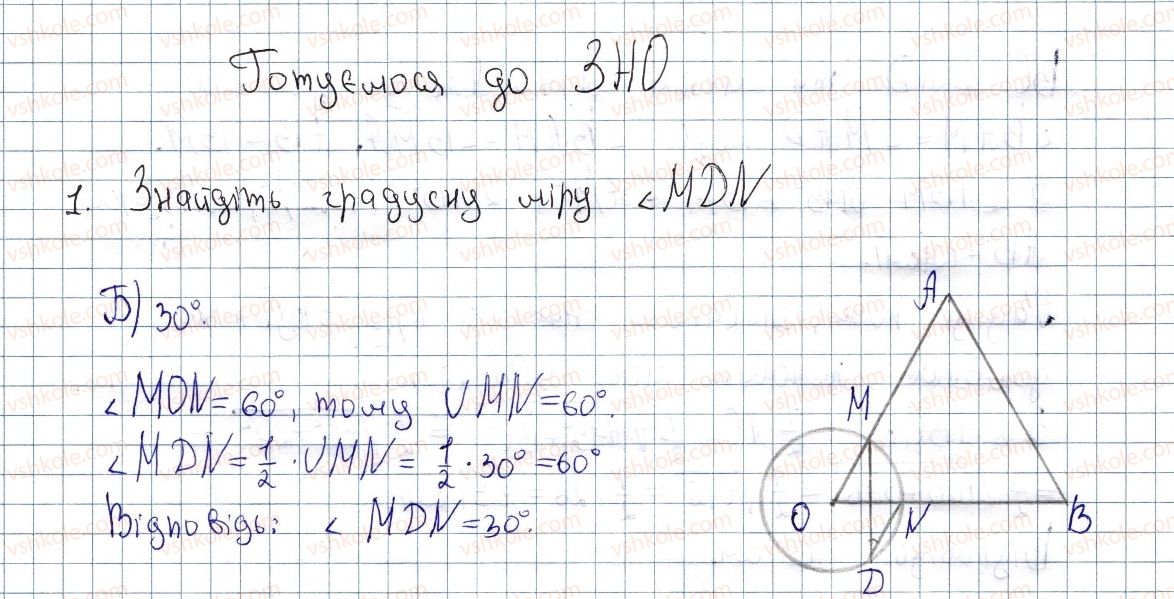 Готуємося до ЗНО
1. Знайдіть градусну міру ∠MDN
Б) 30°.
∠MON = 60°, тому ∪MN = 60°.
∠MDN = 1/2 · ∪MN = 1/2 · 30° = 60°
Відповідь: ∠MDN = 30°.
A
M
O
N
B
D
vshkole.com